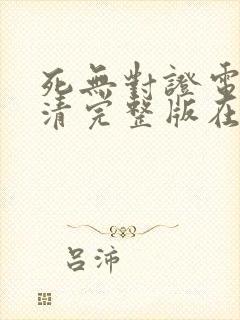 死無對證電
清完整版在
呂沛